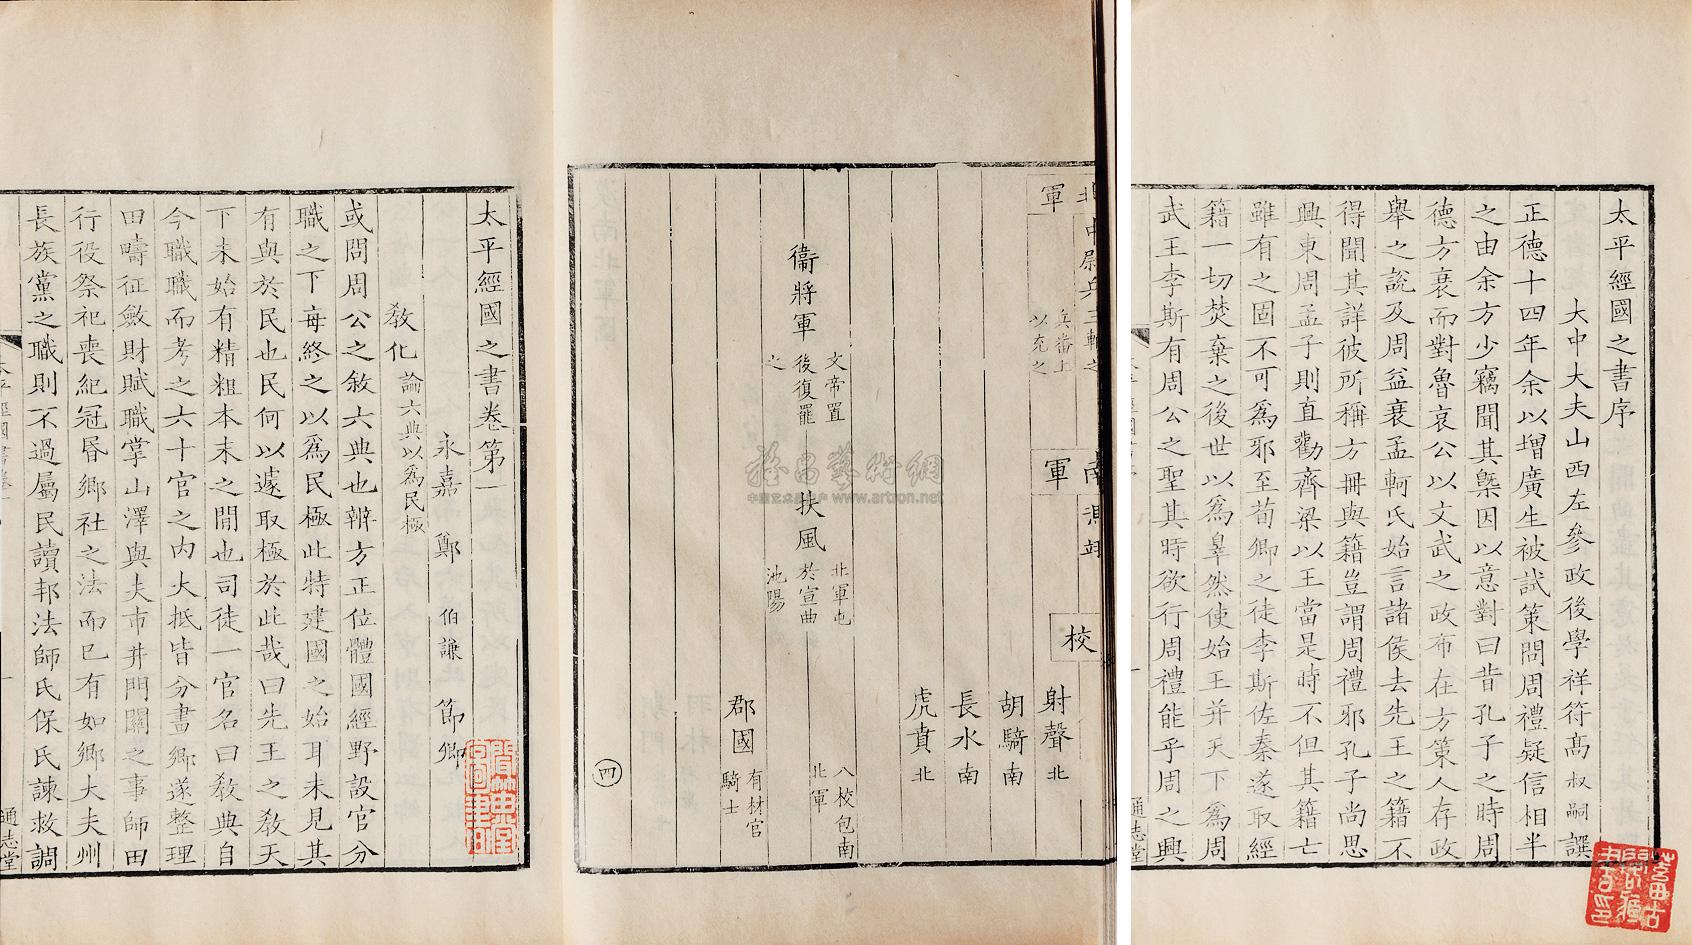 太平經國之書序
大中大夫山西左參政後學祥符高叔嗣譔
正德十四年余以增廣生被試策問周禮疑信相半
之由余方少竊聞其槩因以意對曰昔孔子之時周
德方衰而對魯哀公以文武之政布在方策人存政
舉之說及周益衰孟軻氏始言諸侯去先王之籍不
得聞其詳彼所稱方冊與籍豈謂周禮邪孔子尚思
興東周孟子則直勸齊梁以王當是時不但其籍亡
雖有之固不可爲邪至荀卿之徒李斯佐秦遂取經
籍一切焚棄之後世以爲辠然使始王并天下爲周
武王李斯有周公之聖其時欲行周禮能乎周之興
通志堂
北軍
中尉
兵番上
以充之
南軍
校
射聲北
胡騎南
長水南
虎賁北
八校包南
北軍
衞將軍
文帝置
後復罷
之
扶風
北軍屯
於宣曲
池陽
郡國
有材官
騎士
四
太平經國之書卷第一
永嘉鄭伯謙節卿
敎化
論六典以爲民極
或問周公之敘六典也辨方正位體國經野設官分
職之下每終之以爲民極此特建國之始耳未見其
有與於民也民何以遽取極於此哉曰先王之敎天
下未始有精粗本末之閒也司徒一官名曰敎典自
今職職而考之六十官之内大抵皆分畫鄉遂整理
田疇征斂財賦職掌山澤與夫市井門關之事師田
行役祭祀喪紀冠昏鄉社之法而已有如鄉大夫州
長族黨之職則不過屬民讀邦法師氏保氏諫救調
通志堂
www.artron.net